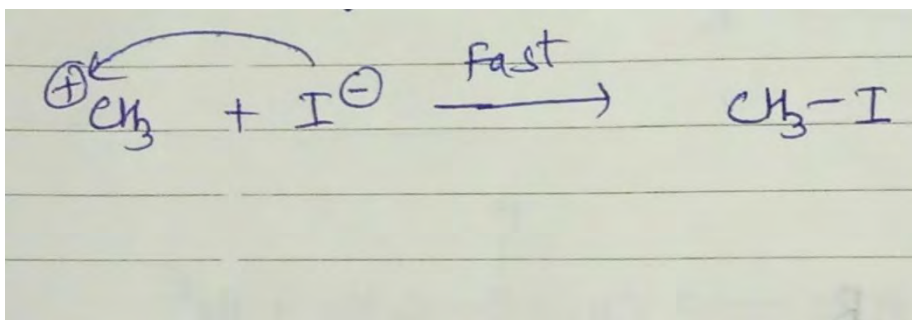 ⊕CH₃ + I⊖ Fast → CH₃-I